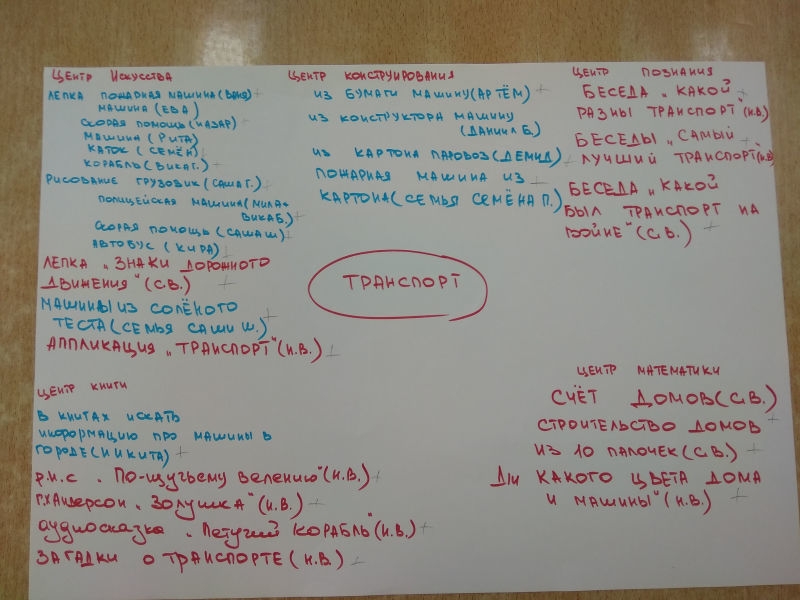 Центр Искусства
Лепка пожарная машина (Ваня)
машина (Ева)
скорая помощь (Назар)
машина (Рита)
каток (Семён)
корабль (Вика Г.)
Рисование грузовик (Саша Г.)
полицейская машина (Мила +
Вика Б.)
скорая помощь (Саша Ш)
автобус (Кира)
Лепка „Знаки дорожного
движения" (С.В.)
Машины из солёного
теста (семья Саши Ш.)
Аппликация „Транспорт" (И.В.)
Центр конструирования
из бумаги машину (Артём)
из конструктора машину
(Даниил Б.)
из картона паровоз (Демид)
пожарная машина из
картона (семья Семёна П.)
Центр познания
Беседа „Какой
разны транспорт" (И.В.)
Беседы „Самый
лучший транспорт" (И.В)
Беседа „Какой
был транспорт на
войне" (С.В.)
Транспорт
Центр книги
В книгах искать
информацию про машины в
городе (Никита)
р.н.с. „По-щучьему велению" (И.В.)
Г.Х Андерсон „Золушка" (И.В.)
аудиосказка „Летучий корабль" (И.В.)
Загадки о транспорте (И.В.)
Центр математики
Счёт домов (С.В.)
Строительство домов
из 10 палочек (С.В.)
Д/и Какого цвета дома
и машины" (И.В.)